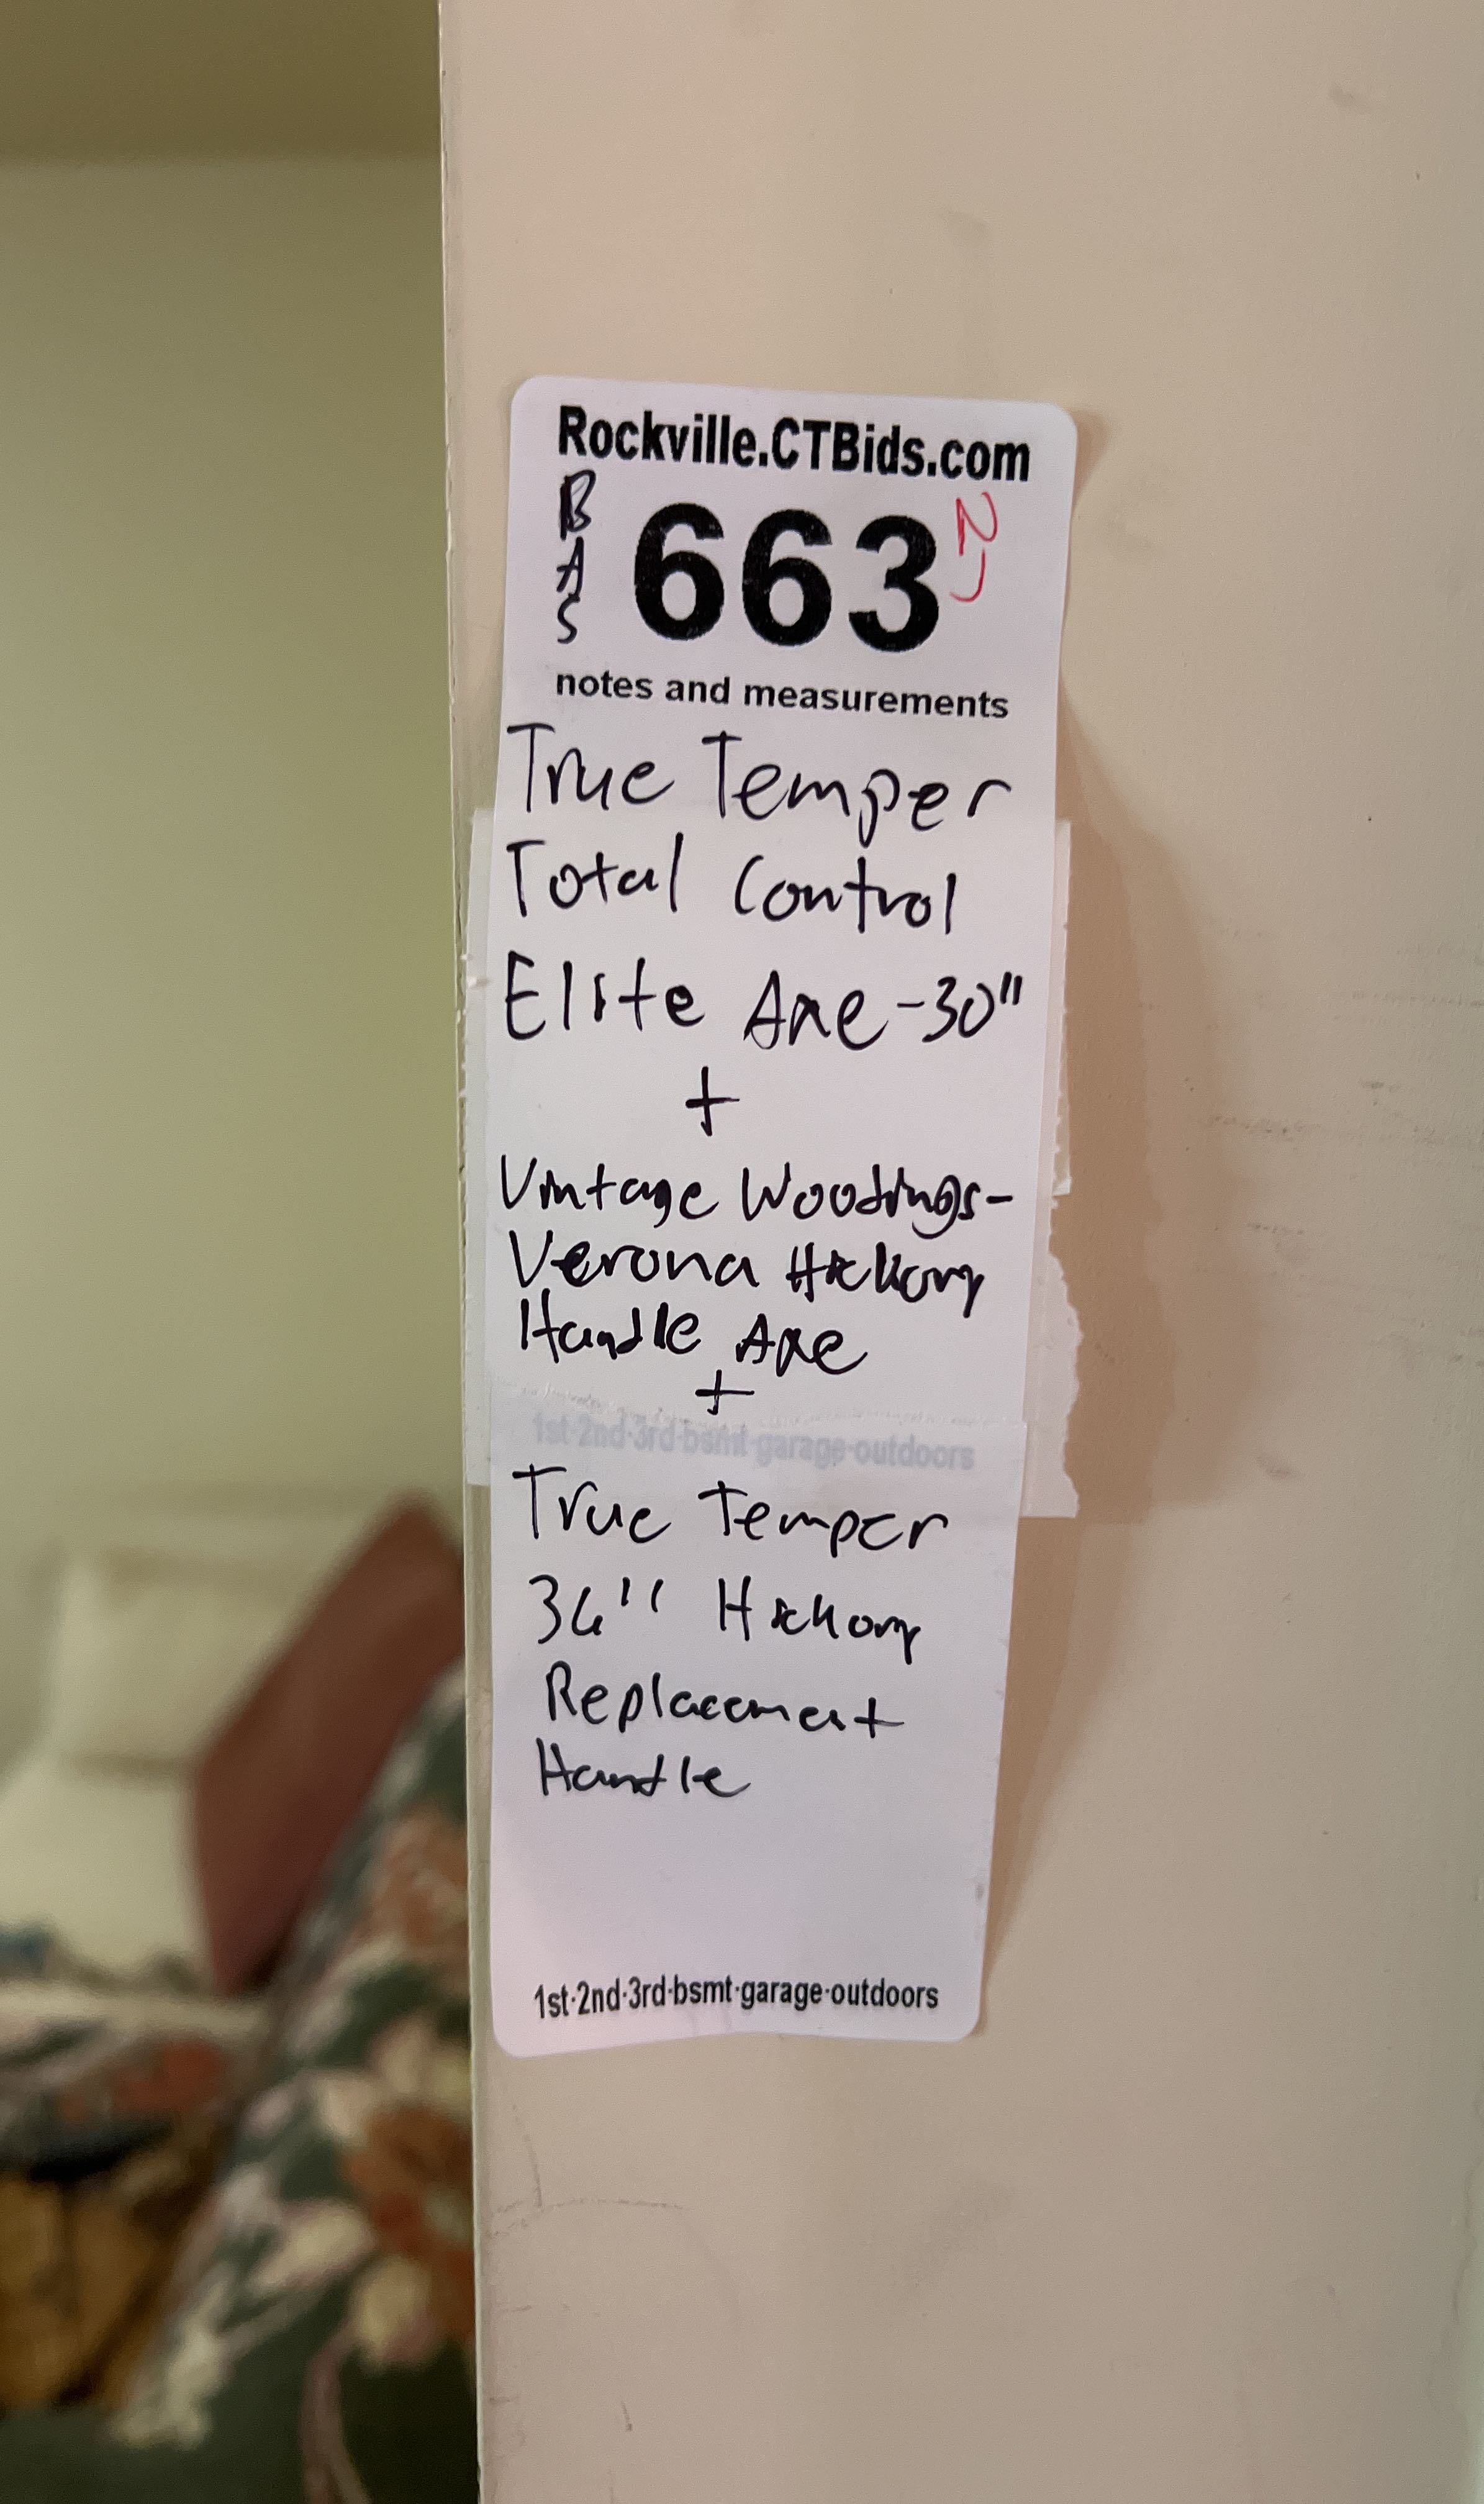 Rockville.CTBids.com
BAS 663 NJ
notes and measurements
True Temper
Total Control
Elite Axe-30"
+
Vintage Woodings-
Verona Hickory
Handle Axe
+
1st·2nd·3rd·bsmt·garage·outdoors
True Temper
36" Hickory
Replacement
Handle
1st·2nd·3rd·bsmt·garage·outdoors